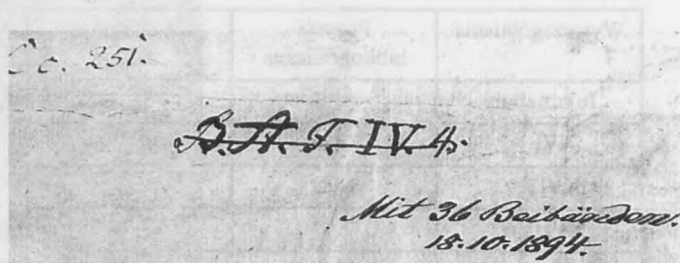 Cc. 251.
B. A. F. IV. 4.
Mit 36 Beibänden.
18.10.1894.